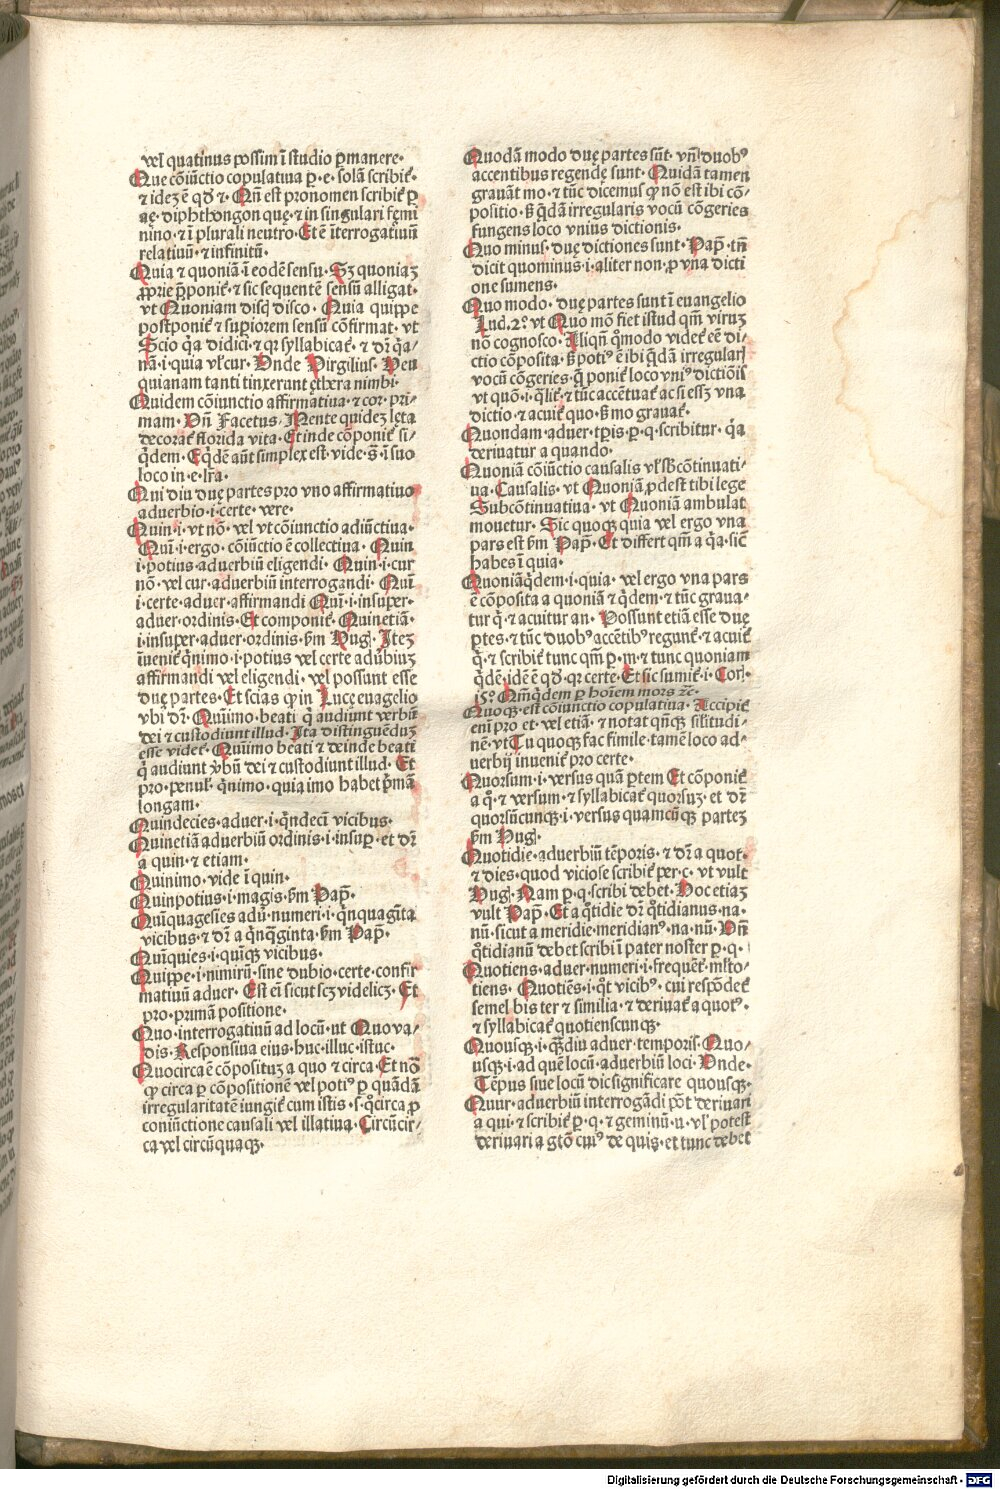 vel quatinus possim ī studio ꝑmanere·
Que cōiūctio copulatiua ꝑ·e·solā scribit᷑·
⁊ idez ē qď ⁊· Qn̄ est pronomen scribit᷑ ꝑ
ae·diphthongon que·⁊ in singulari fęmi
nino·⁊ ī plurali neutro·Et ē īterrogatiuū
relatiuū·⁊ infinitū·
Quia ⁊ quoniā ī eodē sensu·Sz quoniaz
ꝓprie p̄ponit᷑ ⁊ sic sequentē sensū alligat·
vt Quoniam disq̄ disco· Quia quippe
postponit᷑ ⁊ supiorem sensū cōfirmat·vt
Scio q̄a didici·⁊ qr syllabicat᷑·⁊ dr̄ q̄a/
nā·i·quia vl'cur· Vnde Virgilius· Heu
quianam tanti tinxerunt ęthera nimbi·
Quidem cōiunctio affirmatiua·⁊ cor·pri/
mam· Vn̄ Facetus· Mente quidez lęta
decorat᷑ florida vita·Et inde cōponit᷑ si/
q̄dem·Eq̄dē aūt simplex est·vide·s̄·ī suo
loco in·e·lr̄a·
Qui diu duę partes pro vno affirmatiuo
aduerbio·i·certe·vere·
Quin·i·vt nō·vel vt cōiunctio adiūctiua·
Quī·i·ergo·cōiūctio ē collectiua· Quin
i·potius·aduerbiū eligendi· Quin·i·cur
nō·vel cur·aduerbiū interrogandi· Quī
i·certe·aduer·affirmandi Quī·i·insuper·
aduer·ordinis·Et componit᷑· Quinetiā·
i·insuper·aduer·ordinis·ẜm Hug· Itez
īuenit᷑ q̄nimo·i·potius vel certe adūbiuz
affirmandi vel eligendi·vel possunt esse
duę partes·Et scias ꝙ in Lucę euāgelio
vbi dr̄· Quīimo·beati q̄ audiunt verbū
dei ⁊ custodiunt illud·Ita distinguēduz
esse videt᷑· Quīimo beati ⁊ deinde beati
q̄ audiunt v̄bū dei ⁊ custodiunt illud· Et
pro·penul'·q̄nimo·quia imo habet p̄mā
longam·
Quindecies·aduer·i·q̄ndecī vicibus·
Quinetiā aduerbiū ordinis·i·insuꝑ·et dr̄
a quin·⁊ etiam·
Quinimo·vide ī quin·
Quinpotius·i·magis·ẜm Pap̄·
Quīquagesies adū·numeri·i·q̄nquagīta
vicibus·⁊ dr̄ a q̄nq̄ginta·ẜm Pap̄·
Quīquies·i·quīqꝫ vicibus·
Quippe·i·nimirū·sine dubio·certe·confir
matiuū aduer· Est ēī sicut scz videlicz· Et
pro·primā positione·
Quo·interrogatiuū ad locū·ut Quo va/
dis·Responsiua eius·huc·illuc·istuc·
Quocirca ē cōpositūz a quo ⁊ circa·Et nō
ꝙ circa ꝑ cōpositionē vel poti⁹ ꝑ quādā
irregularitatē iungit᷑ cum istis·s·q̊circa ꝓ
coniūctione causali vel illatiua·Circūcir/
ca vel circūquaqꝫ·
Quodā modo duę partes sūt·vn̄ duob⁹
accentibus regendę sunt· Quidā tamen
grauāt mo·⁊ tūc dicemus ꝙ nō est ibi cō/
positio·ẜ q̄dā irregularis vocū cōgeries
fungens loco vnius dictionis·
Quo minus·duę dictiones sunt·Pap̄·tn̄
dicit quominus·i·aliter non·ꝓ vna dicti
one sumens·
Quo modo·duę partes sunt ī euangelio
Lud·2°·vt Quo mō fiet istud qm̄ viruz
nō cognosco·Aliqn̄ q̊modo videt᷑ eē di/
ctio cōposita·ẜ poti⁹ ē ibi q̄dā irregularis
vocū cōgeries·q̄ ponit᷑ loco vni⁹ dictiōis
vt quō·i·q̄lit᷑·⁊ tūc accētuat᷑ ac si essz vna
dictio·⁊ acuit᷑ quo·ẜ mo grauat᷑·
Quondam·aduer·tꝑis·ꝑ·q·scribitur·q̄a
deriuatur a quando·
Quoniā cōiūctio causalis vl'sb̄cōtinuati/
ua·Causalis·vt Quoniā ꝓdest tibi lege
Subcōtinuatiua·vt Quoniā ambulat
mouetur· Sic quoqꝫ quia vel ergo vna
pars est ẜm Pap̄·Et differt qm̄ a q̄a·sic̄
habes ī quia·
Quoniāq̄dem·i·quia·vel ergo vna pars
ē cōposita a quoniā ⁊ q̄dem·⁊ tūc graua/
tur q̄·⁊ acuitur an· Possunt etiā esse duę
ꝑtes·⁊ tūc duob⁹ accētib⁹ regunt᷑·⁊ acuit᷑
q̄·⁊ scribit᷑ tunc qm̄ ꝑ·m·⁊ tunc quoniam
q̄dē·idē ē qď·qr certe·Et sic sumit᷑·i·Cor·
15° Qm̄q̄dem ꝑ hoīem mors ⁊c·
Quoqꝫ·est cōiunctio copulatiua·Accipit᷑
enī pro et·vel etiā·⁊ notat qn̄qꝫ silitudi/
nē·vt Tu quoqꝫ fac simile·tamē loco ad/
uerbij inuenit᷑ pro certe·
Quorsum·i·versus quā ꝑtem Et cōponit᷑
a q̊·⁊ versum·⁊ syllabicat᷑ quorsuz·et dr̄
quorsūcunqꝫ·i·versus quamcūqꝫ partez
ẜm Hug·
Quotidie·aduerbiū tēporis·⁊ dr̄ a quot·
⁊ dies·quod viciose scribit᷑ per·c·vt vult
Hug· Nam ꝑ·q·scribi debet·Hoc etiaz
vult Pap̄·Et a q̊tidie dr̄ q̊tidianus·na·
nū·sicut a meridie·meridian⁹·na·nū· Vn̄
q̊tidianū debet scribi ī pater noster ꝑ·q·
Quotiens·aduer·numeri·i·frequēt᷑·ml'to/
tiens· Quotiēs·i·q̊t vicib⁹·cui respōdet᷑
semel bis ter ⁊ similia·⁊ deriuat᷑ a quot⁹·
⁊ syllabicat᷑ quotienscunqꝫ·
Quousqꝫ·i·qꝫdiu aduer·temporis·Quo/
usqꝫ·i·ad quē locū·aduerbiū loci· Vnde·
Tēpus siue locū dic significare quousqꝫ·
Quur·aduerbiū interrogādi pōt deriuari
a qui·⁊ scribit᷑ ꝑ·q·⁊ geminū·u·vl'potest
deriuari a gtō cui⁹ de quis·et tunc debet
Digitalisierung gefördert durch die Deutsche Forschungsgemeinschaft · DFG